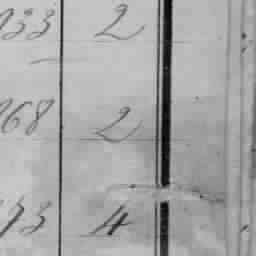 33 2
68 2
73 4